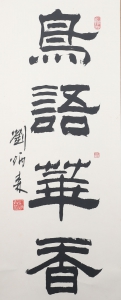 鳥語華香
劉炳森